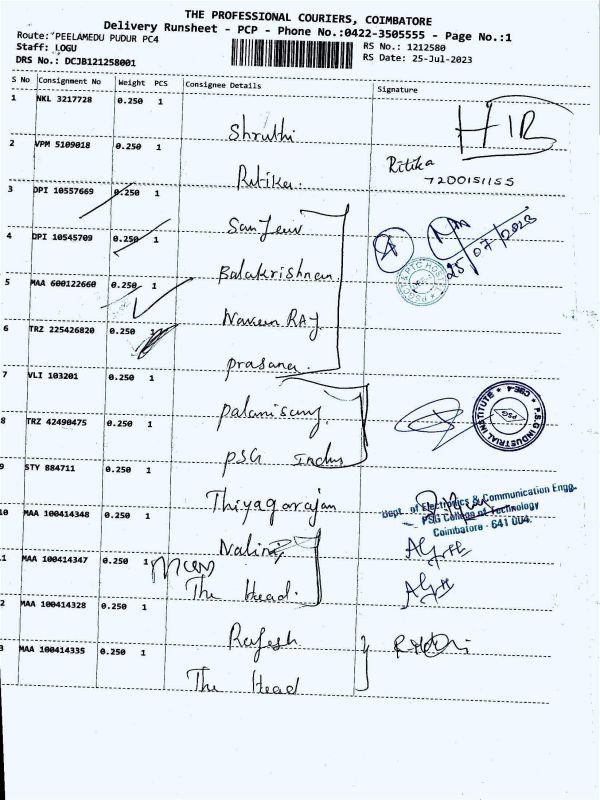 THE PROFESSIONAL COURIERS, COIMBATORE
Delivery Runsheet - PCP - Phone No.:0422-3505555 - Page No.:1
Route: PEELAMEDU PUDUR PC4
Staff: LOGU
DRS No.: DCJB121258001
RS No.: 1212580
RS Date: 25-Jul-2023
S No Consignment No Weight PCS Consignee Details Signature
1 NKL 3217728 0.250 1
Shruthi
HIB
2 VPM 5109018 0.250 1
Ritika.
Ritika
7200151155
3 DPI 10557669 0.250 1
Sanjeev
4 DPI 10545709 0.250 1
Balakrishnan
25/07/2023
5 MAA 600122660 0.250 1
Naveen RAJ
6 TRZ 225426820 0.250 1
prasana.
7 VLI 103201 0.250 1
palanisamy
P.S.G INDUSTRIAL INSTITUTE * CBE-4 *
PSG
8 TRZ 42490475 0.250 1
PSG Indus
9 STY 884711 0.250 1
Thiyagarajan
Dept. of Electronics & Communication Engg.
PSG College of Technology
Coimbatore - 641 004.
10 MAA 100414348 0.250 1
Nalin
11 MAA 100414347 0.250 1
The Head.
2 MAA 100414328 0.250 1
Rajesh
3 MAA 100414335 0.250 1
The Head